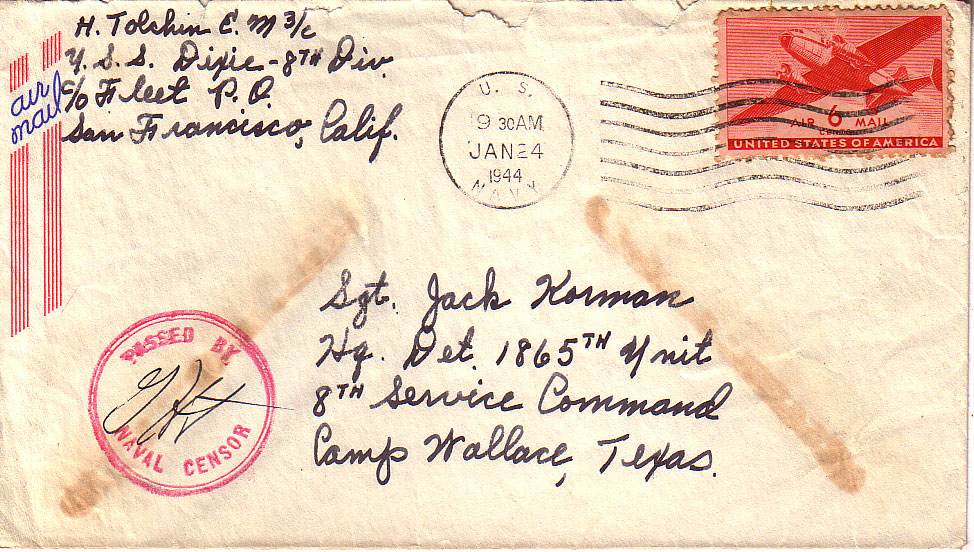 H. Tolchin E. M 3/c
U. S. S. Dixie - 8TH Div.
c/o Fleet P. O.
San Francisco, Calif.
air
mail
U. S.
9 30 AM
JAN 24
1944
NAVY
6
AIR MAIL
CENTS
UNITED STATES OF AMERICA
Sgt. Jack Korman
Hq. Det. 1865TH Unit
8TH Service Command
Camp Wallace, Texas.
PASSED BY
NAVAL CENSOR